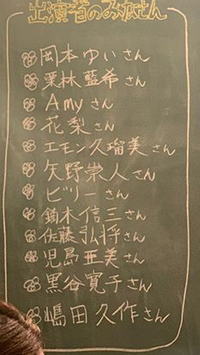 出演者のみなさん
岡本ゆいさん
栗林藍希さん
Amyさん
花梨さん
エモン久瑠美さん
矢野崇人さん
ビリーさん
鏑木信三さん
佐藤弘将さん
児島亜美さん
黒谷寛子さん
嶋田久作さん